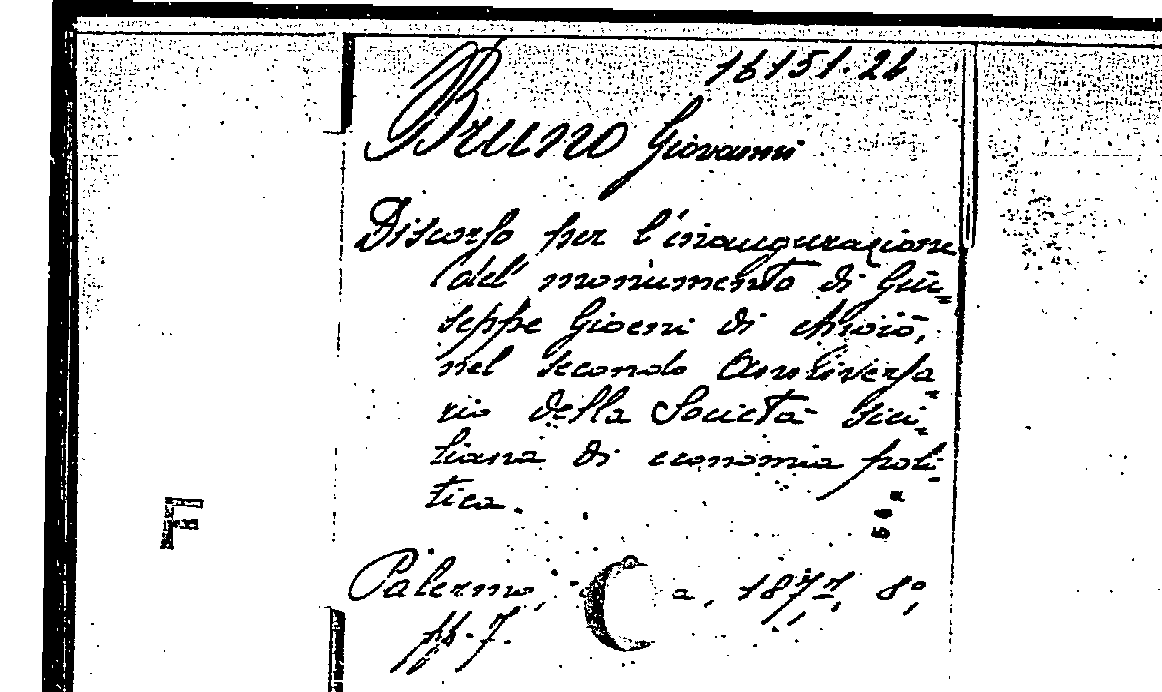 16151.26
Bruno Giovanni
Discorso per l'inaugurazione
del monumento di Giu-
seppe Gioeni di
nel secondo Anniversa-
rio della Società sici-
liana di economia poli-
tica.
F
Palermo, a, 1877, 8°,
pp. 7.